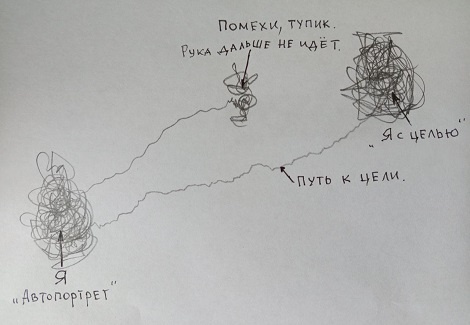 Помехи, тупик.
Рука дальше не идёт.
„Я с целью"
Путь к цели.
Я
„Автопортрет"